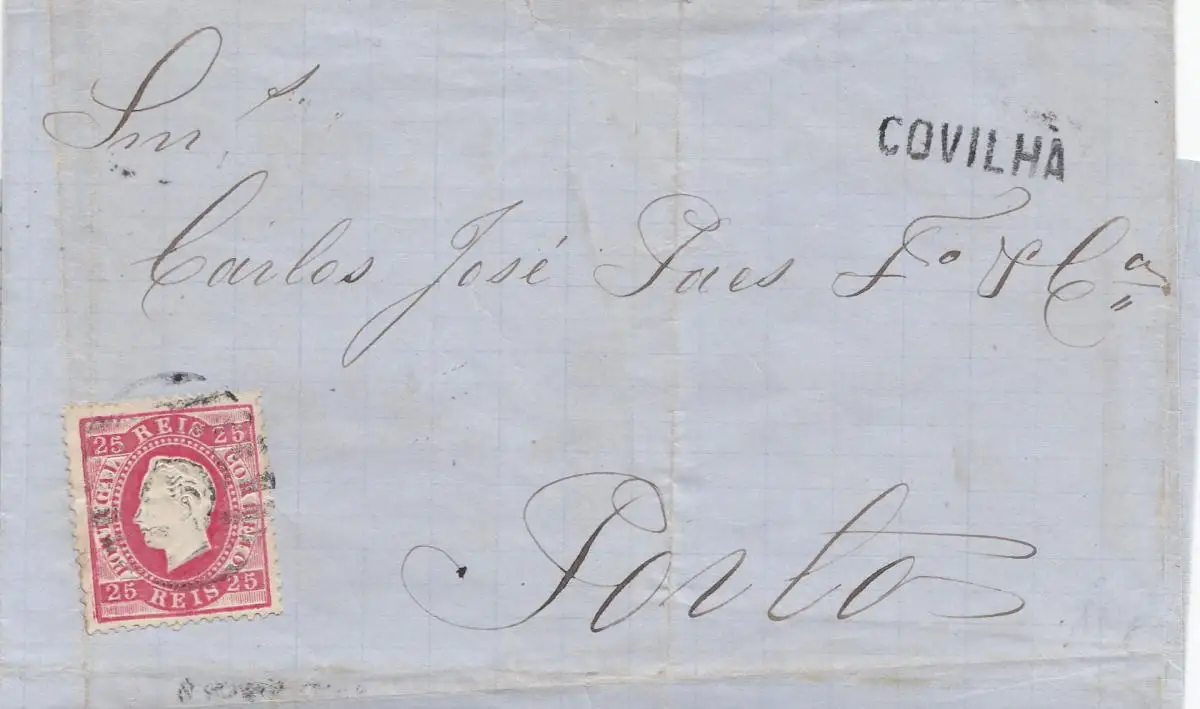 Snrs.
COVILHÃ
Carlos José Paes Fo. & Ca
Porto
25 REIS 25
PORTUGAL
CORREIO
25 REIS 25